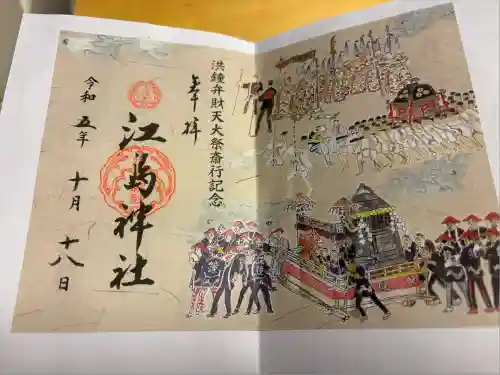 洪鐘弁財天大祭斎行記念
奉拝
江島神社
令和五年
十月
十八日